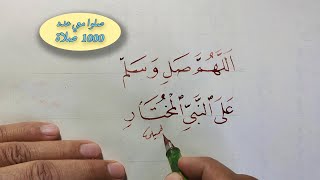 صلوا معي عدد
1000 صلاة
اَللّٰهُمَّ صَلِّ وَسَلِّمْ
عَلَى ٱلنَّبِيِّ ٱلْمُخْتَارِ